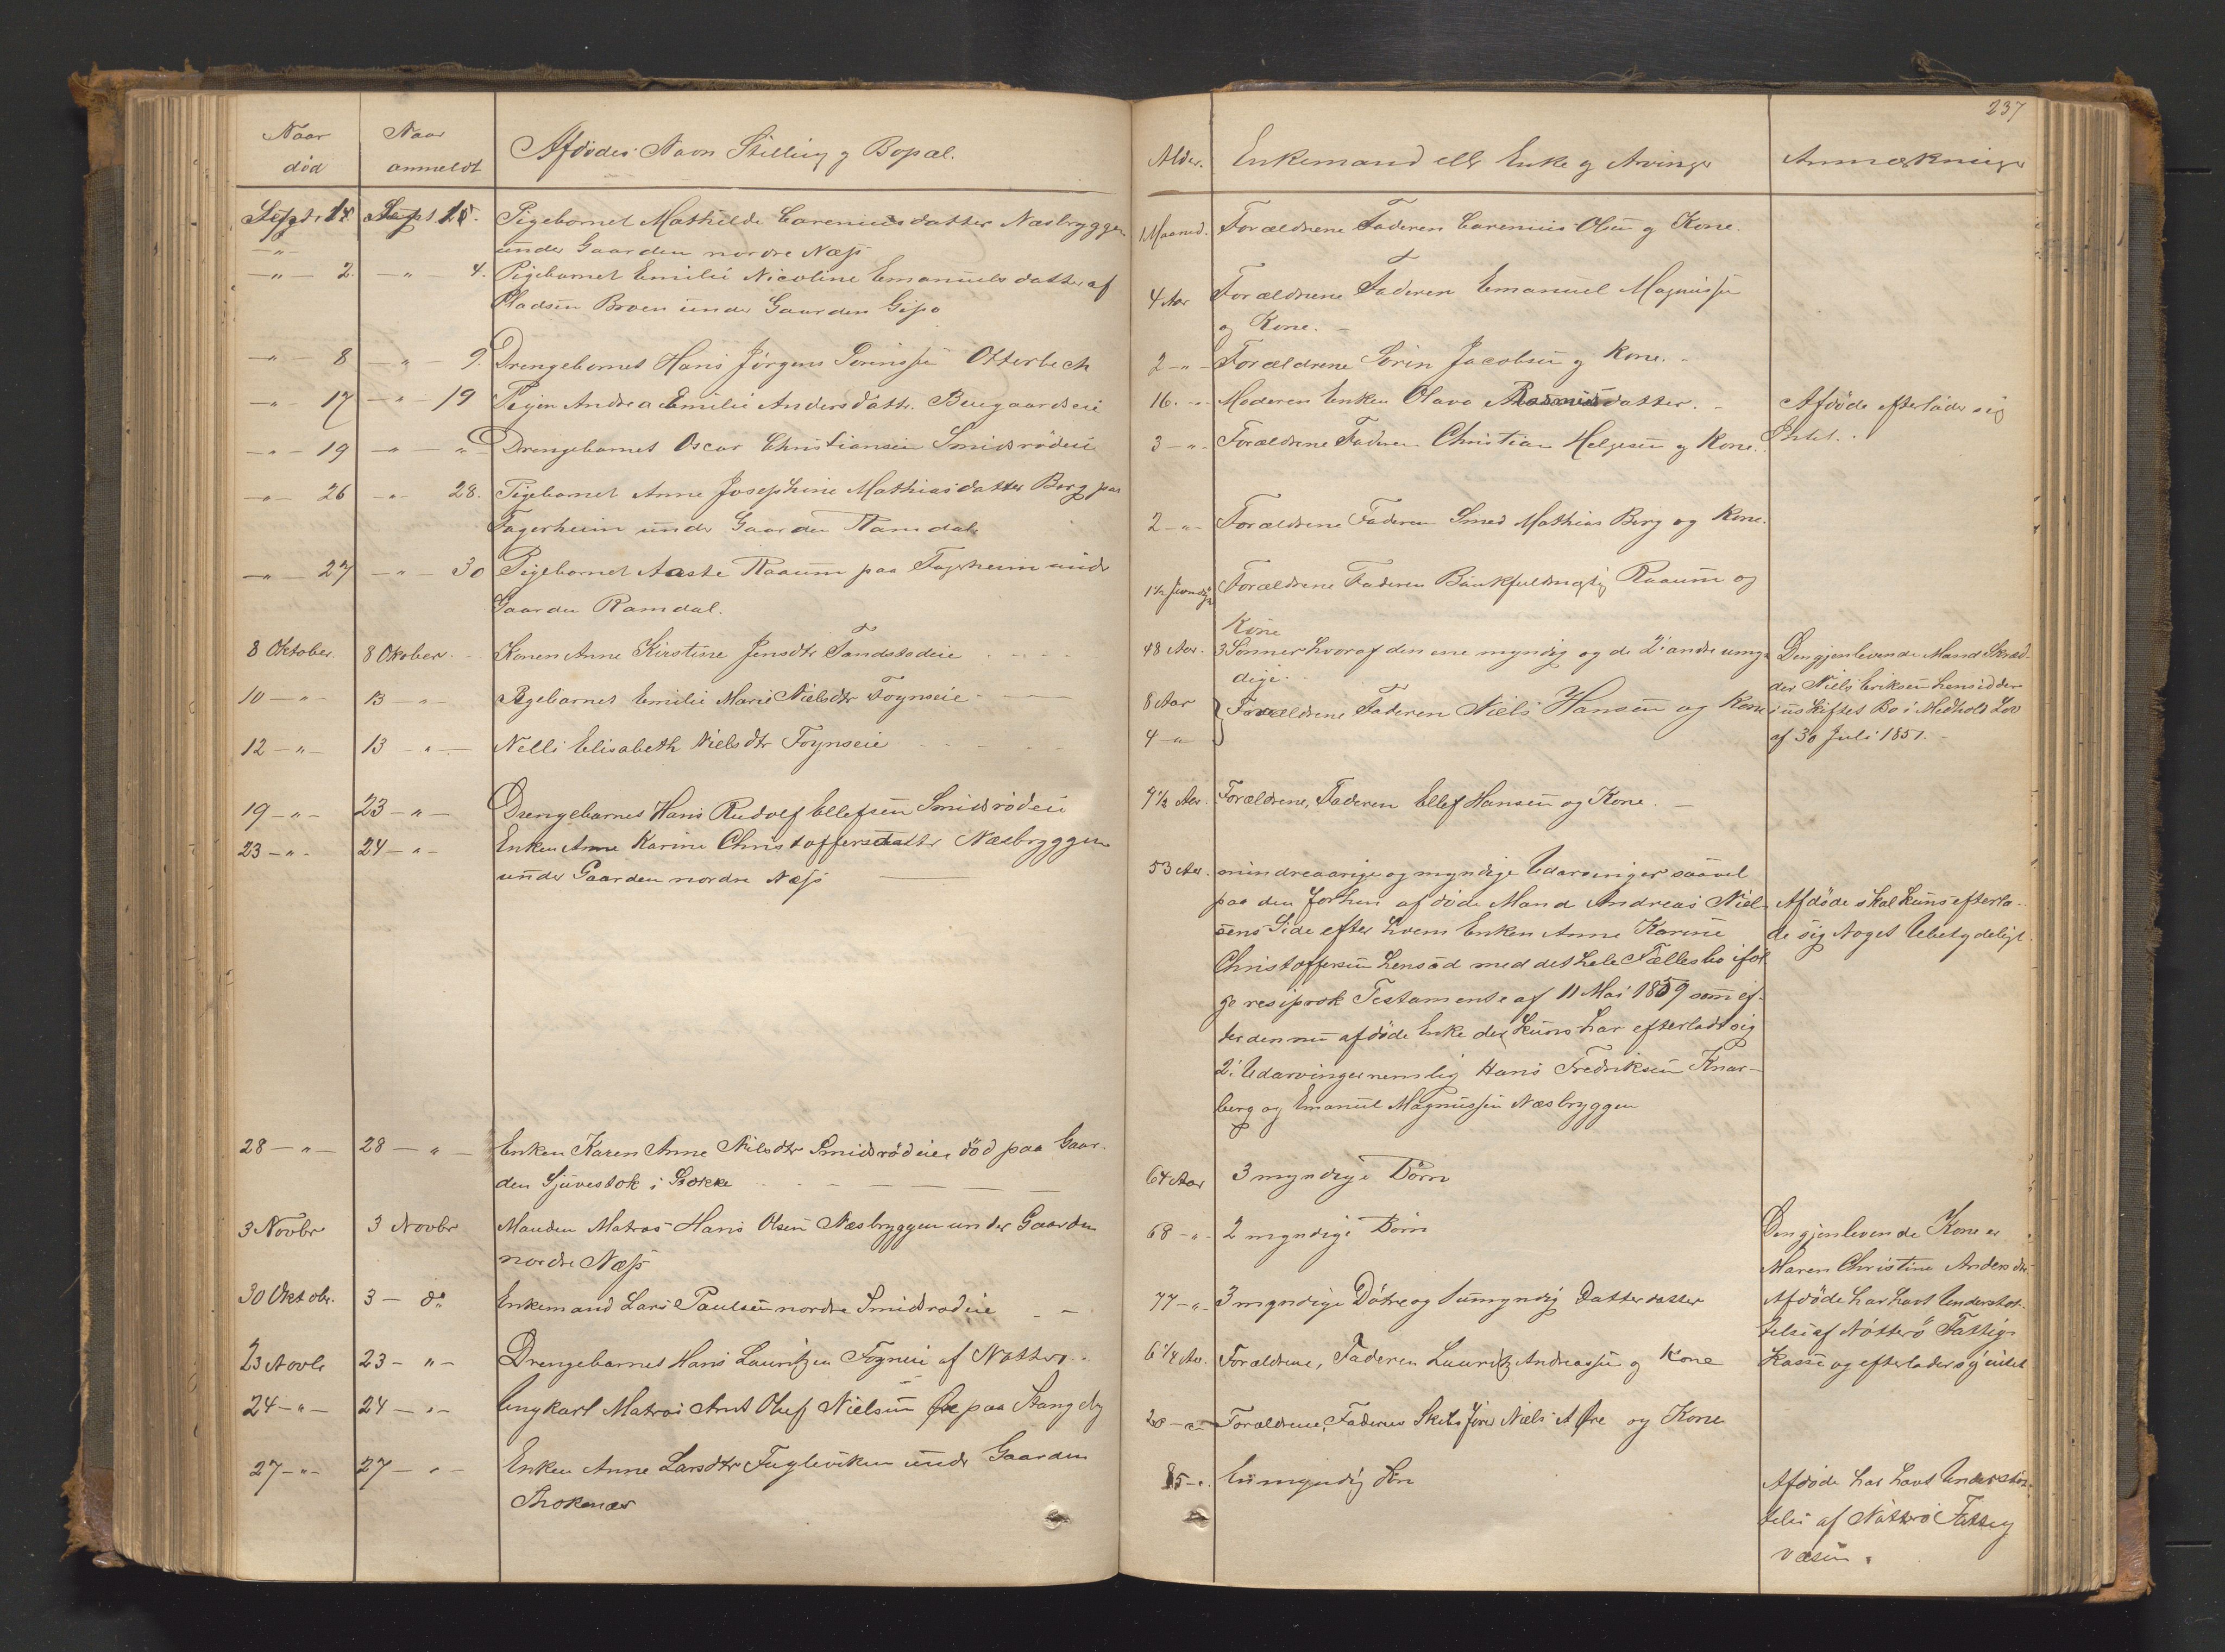 Naar
død
Naar
anmeldt
Afdødes Navn Stilling og Bopæl.
Sept. 14. Sept 15. Pigebarnet Mathilde Careniusdatter Næsbryggen
under Gaarden nordre Næss
—"— 2. —"— 4. Pigebarnet Emilie Nicoline Emanuelsdatter af
Pladsen Broen under Gaarden Gipø
—"— 8 —"— 9. Drengebarnet Hans Jørgens Sørinssen Otterbech
—"— 17 —"— 19 Pigen Andrea Emilie Andersdattr.
—"— 19 —"— " Drengebarnet Oscar Christiansen Smidsrødeie
—"— 26 —"— 28. Pigebarnet Anne Josephine Mathiasdatter Berg paa
Fagerheim under Gaarden Ramdal
—"— 27 —"— 30 Pigebarnet Aaste Raaum paa Fagerheim under
Gaarden Ramdal.
8 Oktober. 8 Oktober. Konen Anne Kirstine Jensdtr
10 —"— 13 —"— Pigebarnet Emilie Marie Nielsdtr Føynseie
12 —"— 13 —"— Nelli Elisabeth Nielsdtr Føynseie
19 —"— 23 —"— Drengebarnet Hans Rudolf Ellefsen Smidsrødeie
23 —"— 24 —"— Enken Anne Karine Christoffersdatter Næsbryggen
under Gaarden nordre Næss
28 —"— 28 —"— Enken Karen Anne Nilsdtr Smidsrødeie, død paa Gaar-
den i Stokke
3 Novbr 3 Novbr Manden Matros Hans Olsen Næsbryggen under Gaarden
nordre Næss
30 Oktobr. 3 — do Enkemand Lars Paulsen nordre Smidsrødeie
23 Novbr 23 —"— Drengebarnet Hans Lauritzen Føyneie af Nøtterø.
24 —"— 24 —"— Ungkarl Matros Arnt Oluf Nielsen Øre paa Stangeby
27 —"— 27 —"— Enken Anne Larsdtr Fugleviken under Gaarden
237
Alder. Enkemand elle Enke og Arvinge Anmærkninger
1 Maaned. Forældrene Faderen Carenius Olsen og Kone.
4 Aar Forældrene Faderen Emanuel Magnussen
og Kone.
2 —"— Forældrene Sørin Jacobsen og Kone.
16. —"— Moderen Enken Olava Rasmusdatter. Afdøde efterlader sig
Intet.
3 —"— Forældrene Faderen Christian Helgesen og Kone.
2 —"— Forældrene Faderen Smed Mathias Berg og Kone.
Forældrene Faderen Bankfuldmægtig Raaum og
Kone
48 Aar. 3 Sønner hvoraf den ene myndig og de 2de andre umyn-
dige.
Den gjenlevende Mand Skræd-
der Niels Eriksen hensidder
i uskiftet Bo i Medhold Lov
af 30 Juli 1851.
8 Aar
4 —"—
Forældrene Faderen Niels Hansen og Kone
4½ Aar. Forældrene, Faderen Ellef Hansen og Kone.
53 Aar. mindreaarige og myndige Udarvinger saavel
paa den forhen afdøde Mand Andreas Niel-
sens Side efter hvem Enken Anne Karine
Christoffersen hensad med det hele Fællesbo iføl-
ge resiprok Testamente af 11 Mai 1859 som ef-
ter den nu afdøde Enke der kuns har efterladt sig
2de Udarvinger nemlig Hans Fredriksen Knar-
berg og Emanuel Magnussen Næsbryggen
Afdøde skal kuns efterla-
de sig Noget Ubetydeligt.
64 Aar 3 myndige Børn
68 —"— 2 myndige Børn
Den gjenlevende Kone er
Maren Christine Andersdtr.
77 —"— 3 myndige Døtre og 1 umyndig Datterdatter
Afdøde har havt Understøt-
telse af Nøtterø Fattig-
kasse og efterlader sig intet
6¼ Aar. Forældrene, Faderen Lauritz Andreassen og Kone
20 —"— Forældrene, Faderen Skibsfører Niels A Øre og Kone
85 —"— En myndig Søn
Afdøde har havt Understøt-
telse af Nøtterø Fattig
væsen.